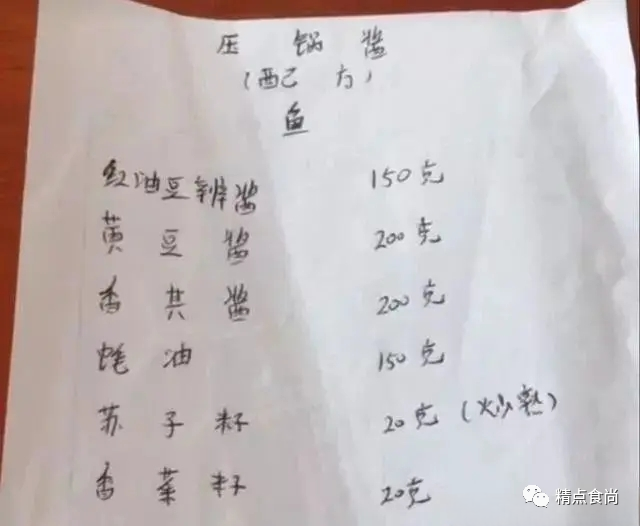 压锅酱
(配方)
鱼
红油豆辨酱 150克
黄豆酱 200克
香其酱 200克
蚝油 150克
苏子籽 20克(炒熟)
香菜籽 20克
精点食尚